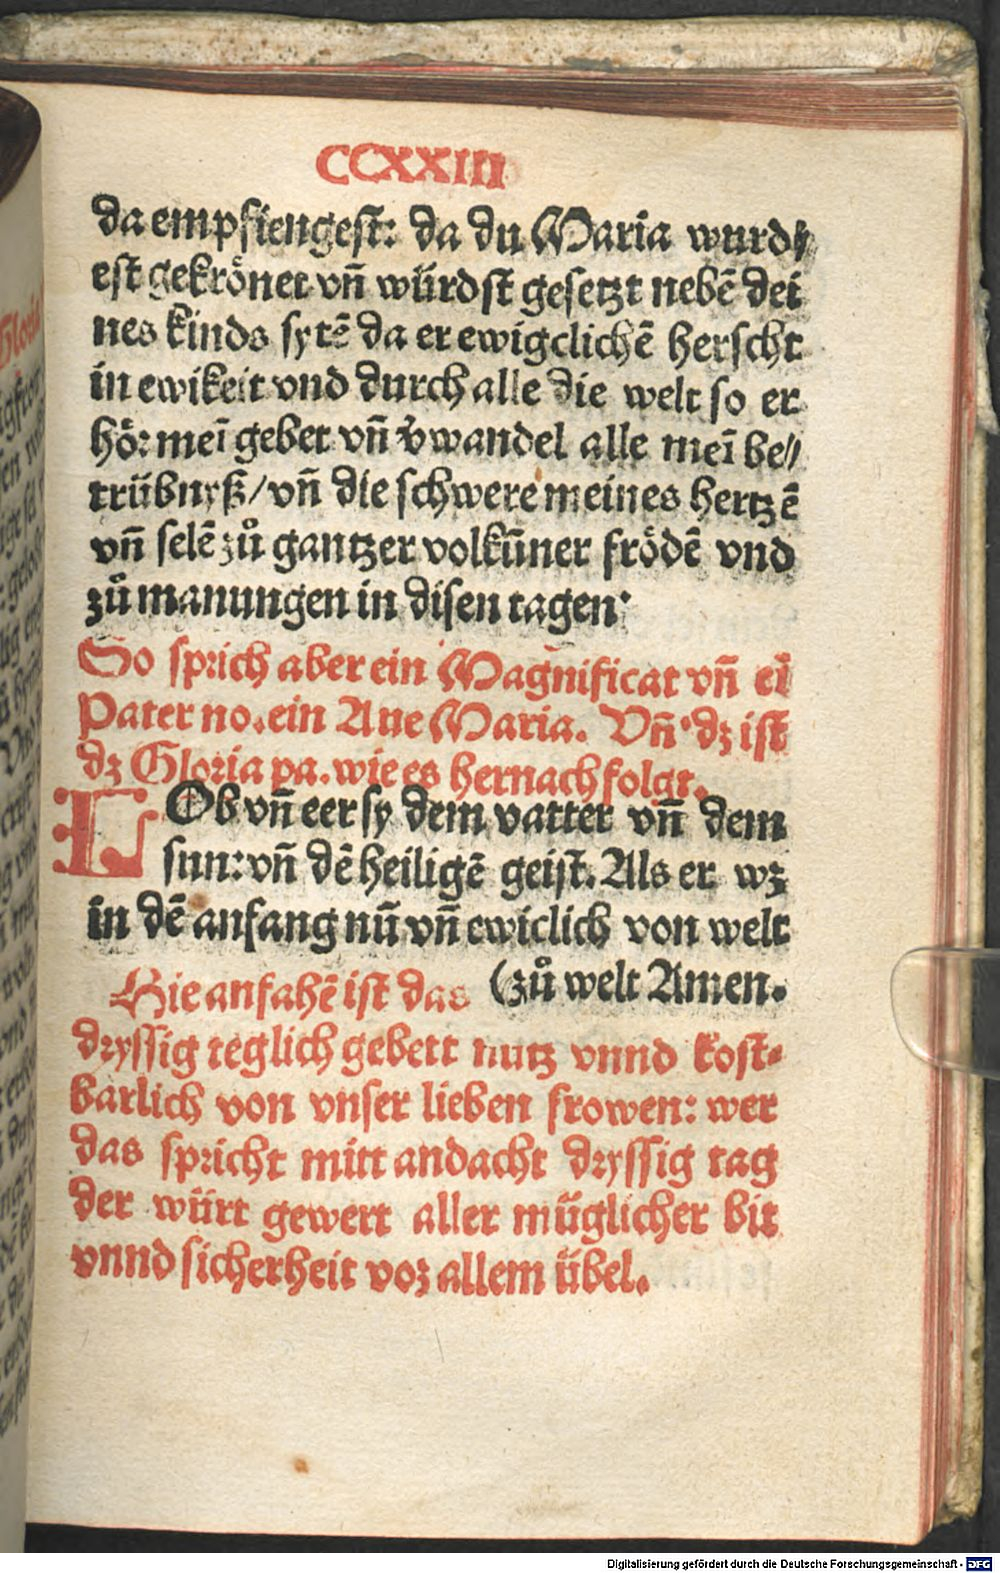 CCXXIII
da empfiengest: da du Maria wurd⸗
est gekrönet vñ würdst gesetzt nebē dei
nes kinds sytē da er ewigclichē herscht
in ewikeit vnd durch alle die welt so er
hör meī gebet vñ v̓wandel alle meī be⸗
trübnyß/ vñ die schwere meines hertzē
vñ selē zů gantzer volkūner frödē vnd
zů manungen in disen tagen.
So sprich aber ein Magnificat vñ eī
Pater no. ein Aue Maria. Vñ dz ist
dz Gloria pa. wie es hernach folgt.
LOb vñ eer sy dem vatter vñ dem
sun: vñ dē heiligē geist. Als er wz
in dē anfang nū vñ ewiclich von welt
(zů welt Amen.
Hie anfahē ist das
dryssig teglich gebett nutz vnnd kost⸗
barlich von vnser lieben frowen: wer
das spricht mitt andacht dryssig tag
der würt gewert aller müglicher bit
vnnd sicherheit vor allem übel.
Digitalisierung gefördert durch die Deutsche Forschungsgemeinschaft - DFG